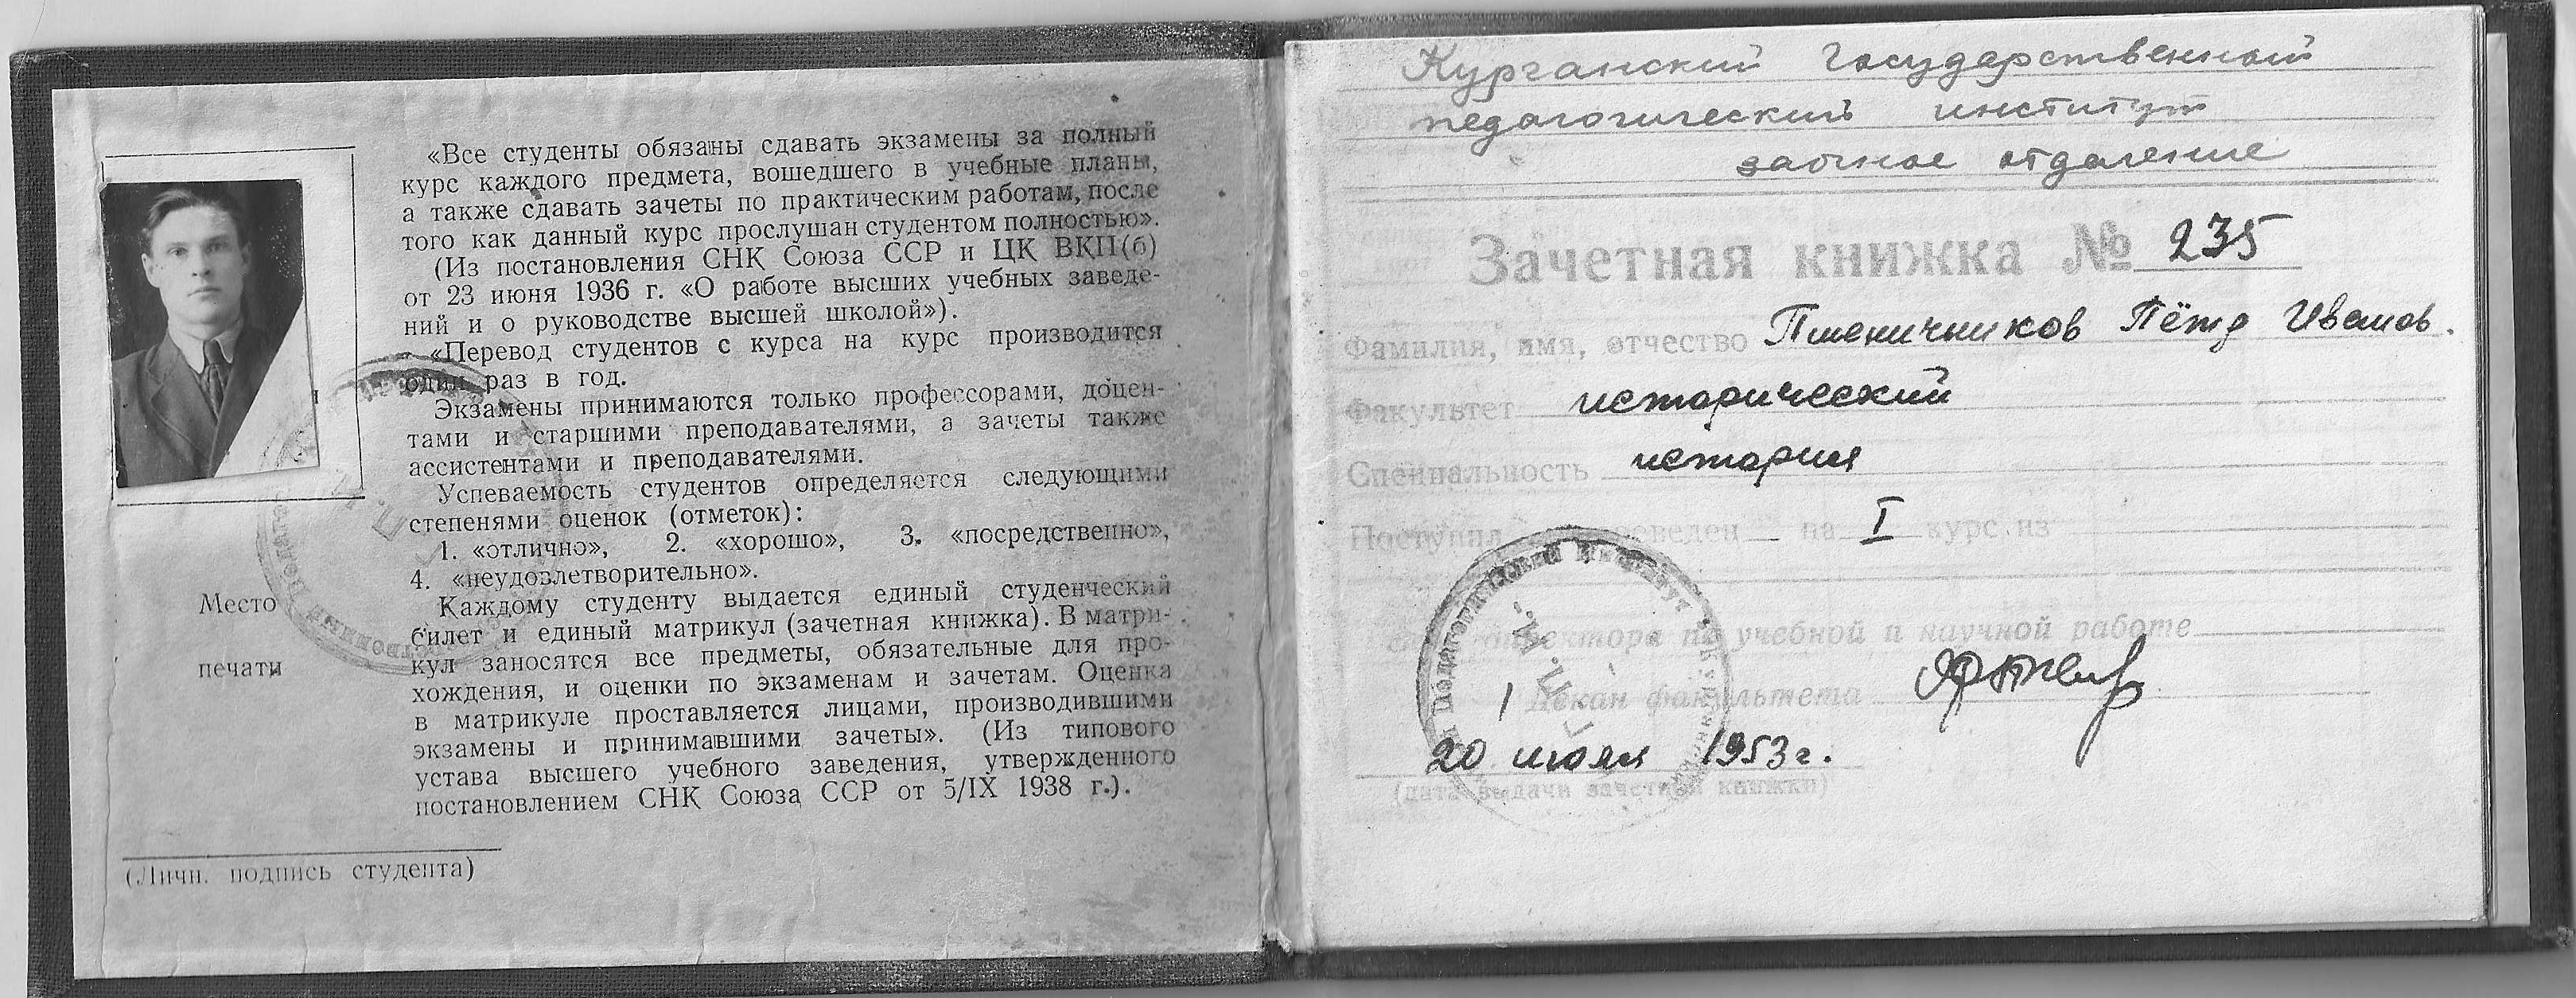 «Все студенты обязаны сдавать экзамены за полный
курс каждого предмета, вошедшего в учебные планы,
а также сдавать зачеты по практическим работам, после
того как данный курс прослушан студентом полностью».
(Из постановления СНК Союза ССР и ЦК ВКП(б)
от 23 июня 1936 г. «О работе высших учебных заведе-
ний и о руководстве высшей школой»).
«Перевод студентов с курса на курс производится
один раз в год.
Экзамены принимаются только профессорами, доцен-
тами и старшими преподавателями, а зачеты также
ассистентами и преподавателями.
Успеваемость студентов определяется следующими
степенями оценок (отметок):
1. «отлично», 2. «хорошо», 3. «посредственно»,
4. «неудовлетворительно».
Каждому студенту выдается единый студенческий
билет и единый матрикул (зачетная книжка). В матри-
кул заносятся все предметы, обязательные для про-
хождения, и оценки по экзаменам и зачетам. Оценка
в матрикуле проставляется лицами, производившими
экзамены и принимавшими зачеты». (Из типового
устава высшего учебного заведения, утвержденного
постановлением СНК Союза ССР от 5/IX 1938 г.).
Место
печати
(Личн. подпись студента)
Курганский Государственный
педагогический институт
заочное отделение
Зачетная книжка № 235
Фамилия, имя, отчество Пшеничников Пётр Иванов.
Факультет исторический
Специальность история
Поступил на I курс из
директора по учебной и научной работе
Декан факультета
20 июля 1953 г.
(дата выдачи зачетной книжки)
Педагогический Институт